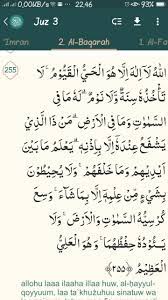 0,00KB/s 22.46 93%
Juz 3
'Imran 2. Al-Baqarah 1. Al-Fa
255
اللّٰهُ لَآ اِلٰهَ اِلَّا هُوَ الْحَيُّ الْقَيُّوْمُ ەۚ لَا
تَأْخُذُهٗ سِنَةٌ وَّلَا نَوْمٌۗ لَهٗ مَا فِى
السَّمٰوٰتِ وَمَا فِى الْاَرْضِۗ مَنْ ذَا الَّذِيْ
يَشْفَعُ عِنْدَهٗٓ اِلَّا بِاِذْنِهٖۗ يَعْلَمُ مَا بَيْنَ
اَيْدِيْهِمْ وَمَا خَلْفَهُمْۚ وَلَا يُحِيْطُوْنَ
بِشَيْءٍ مِّنْ عِلْمِهٖٓ اِلَّا بِمَا شَاۤءَۚ وَسِعَ
كُرْسِيُّهُ السَّمٰوٰتِ وَالْاَرْضَۚ وَلَا
يَـُٔوْدُهٗ حِفْظُهُمَاۚ وَهُوَ الْعَلِيُّ
الْعَظِيْمُ ﴿٢٥٥﴾
allohu laaa ilaaha illaa huw, al-ḥayyul-
qoyyuum, laa ta`khużuhuu sinatuw w